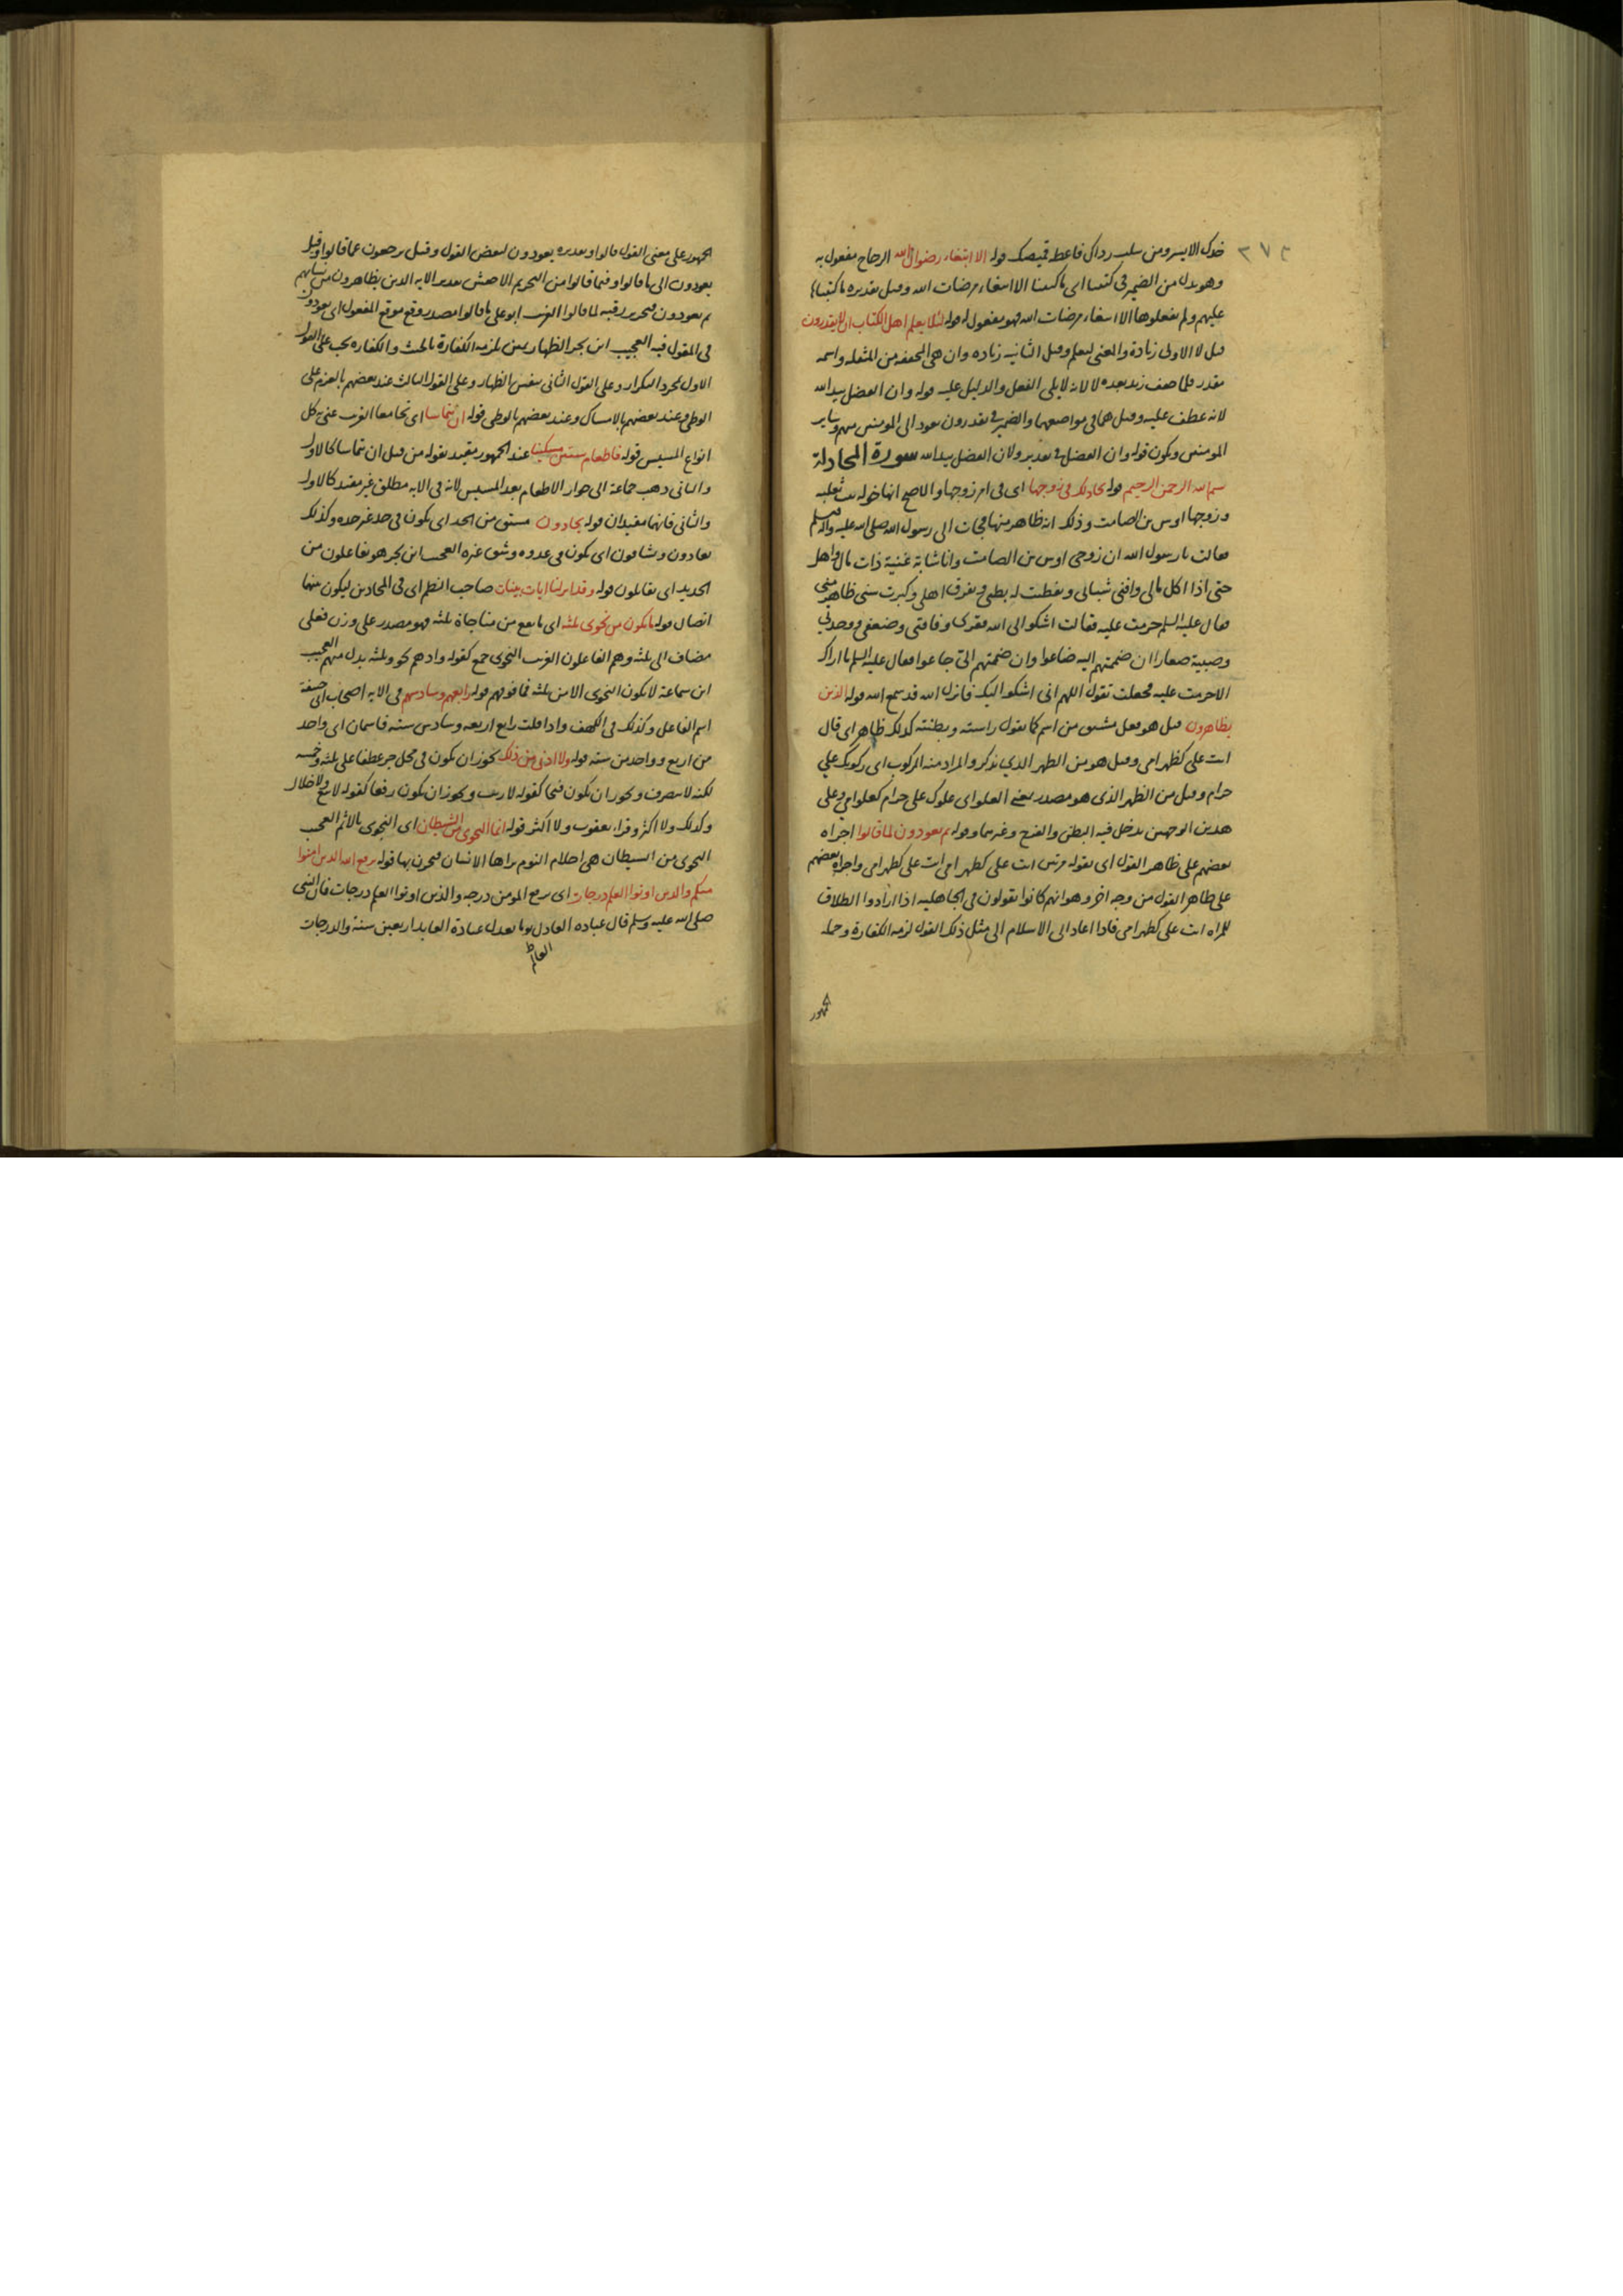 ٢٧٤
خدك الايسر ومن سلب رداك فاعطه قميصك قوله الا ابتغاء رضوان الله الزجاج مفعول به
وهو بدل من الضمير في كتبنا اى ما كتبنا الا ابتغاء مرضات الله وقيل تقديره ما كتبناها
عليهم ولم يفعلوها الا ابتغاء مرضات الله فهو مفعول له قوله لئلا يعلم اهل الكتاب ان لا يقدرون
قيل لا الاولى زيادة والمعنى ليعلم وقيل الثانيه زياده وان هي المخففه من المثقله واسمه
مقدر فلما خفف زيد بعده لا لانه لا يلى الفعل والدليل عليه قوله وان الفضل بيد الله
لانه عطف عليه وقيل هما في مواضعهما والضمير في يقدرون يعود الى المومنين
المومنين ويكون قوله وان الفضل في تقدير ولان الفضل بيد الله سورة المجادلة
بسم الله الرحمن الرحيم قوله تجادلك في زوجها اى في امر زوجها والاصح انها خوله بنت ثعلبه
وزوجها اوس بن الصامت وذلك انه ظاهر منها فجات الى رسول الله صلى الله عليه واله وسلم
فقالت يا رسول الله ان زوجى اوس بن الصامت وانا شابة غنية ذات مال واهل
حتى اذا اكل مالى وافنى شبابى ونفطت له بطنى وتفرق اهلى وكبرت سنى ظاهر منى
فقال عليه السلم حرمت عليه فقالت اشكوا الى الله فقرى وفاقتى وضعفى ووحدتي
وصبية صغارا ان ضممتهم اليه ضاعوا وان ضممتهم الىّ جاعوا فقال عليه السلم ما اراك
الا حرمت عليه فجعلت تقول اللهم انى اشكو اليك فانزل الله قد سمع الله قوله الذين
يظاهرون قيل هو فعل مشتق من اسم كما تقول راسته وبطنته كذلك ظاهر اى قال
انت على كظهر امى وقيل هو من الظهر الذي يذكر والمراد منه الركوب اى ركوبك علي
حرام وقيل من الظهر الذى هو مصدر بمعنى العلو اى علوك على حرام كعلو امى وعلى
هذين الوجهين يدخل فيه البطن والفخذ وغيرهما وقوله ثم يعودون لما قالوا اجراه
بعضهم على ظاهر القول اى بقوله مرتين انت على كظهر امى انت على كظهر امى واجراه بعضهم
على ظاهر القول من وجه اخر وهو انهم كانوا يقولون في الجاهليه اذا ارادوا الطلاق
للمراه انت على كظهر امى فاذا اعاد الى الاسلام الى مثل ذلك القول لزمه الكفارة وحمله
الجمهور
الجمهور على معنى القول قالوا وتقديره يعودون لبعض القول وقيل يرجعون عما قالوا وقيل
يعودون الى ما قالوا وفيما قالوا من التحريم الاخفش تقدير الايه الذين يظاهرون من نسايهم
ثم يعودون فتحرير رقبه لما قالوا الغريب ابو على ما قالوا مصدر وقع موقع المفعول اى يعودون
فى المقول فيه العجيب ابن بحر الظهار يمين يلزمه الكفارة بالحنث والكفاره تجب على القول
الاول بمجرد التكرار وعلى القول الثانى بنفس الظهار وعلى القول الثالث عند بعضهم بالعزم على
الوطى وعند بعضهم بالامساك وعند بعضهم بالوطى قوله ان يتماسا اى تجامعا الغريب عنى به كل
انواع المسيس قوله فاطعام ستين مسكينا عند الجمهور مقيد بقوله من قبل ان يتماسا كالاول
والثانى وذهب جماعة الى جواز الاطعام بعد المسيس لانه في الايه مطلق غير مقيد كالاول
والثاني فانهما مقيدان قوله يحادون مشتق من الحد اى يكون في حد غير حده وكذلك
يعادون ويشاقون اى يكون فى عدوه وشق غيره العجيب ابن بحر هو يفاعلون من
الحديد اى يقاتلون قوله وقد انزلنا ايات بينات صاحب النظم اى في المحادين ليكون بينهما
اتصال قوله ما يكون من نجوى ثلثه اى ما يقع من مناجاة ثلثه فهو مصدر على وزن فعلى
مضاف الى ثلثه وهم الفاعلون الغريب النجوى جمع كقوله واذ هم نجوى وثلثه بدل منهم العجيب
ابن سماعة لا يكون النجوى الا من ثلثه فما فوقهم قوله رابعهم وسادسهم في الايه
اسم الفاعل وكذلك في الكهف واذا قلت رابع اربعه وسادس سته فاسمان اى واحد
من اربع وواحد من سته قوله ولا ادنى من ذلك يجوز ان يكون في محل جر عطفا على ثلثه وخمسه
لكنه لا ينصرف ويجوز ان يكون فتحا كقوله لا ريب ويجوز ان يكون رفعا كقوله لا بيع ولا خلال
وكذلك ولا اكثر وقراءة يعقوب ولا اكثر قوله انما النجوى من الشيطان اى النجوى بالاثم العجيب
النجوى من الشيطان هى احلام النوم يراها الانسان فيحزن بها قوله يرفع الله الذين امنوا
منكم والذين اوتوا العلم درجات اى يرفع المومن درجه والذين اوتوا العلم درجات قال النبى
صلى الله عليه وسلم قال عباده العادل يوما يعدل عبادة العابد اربعين سنة والدرجات
العالم